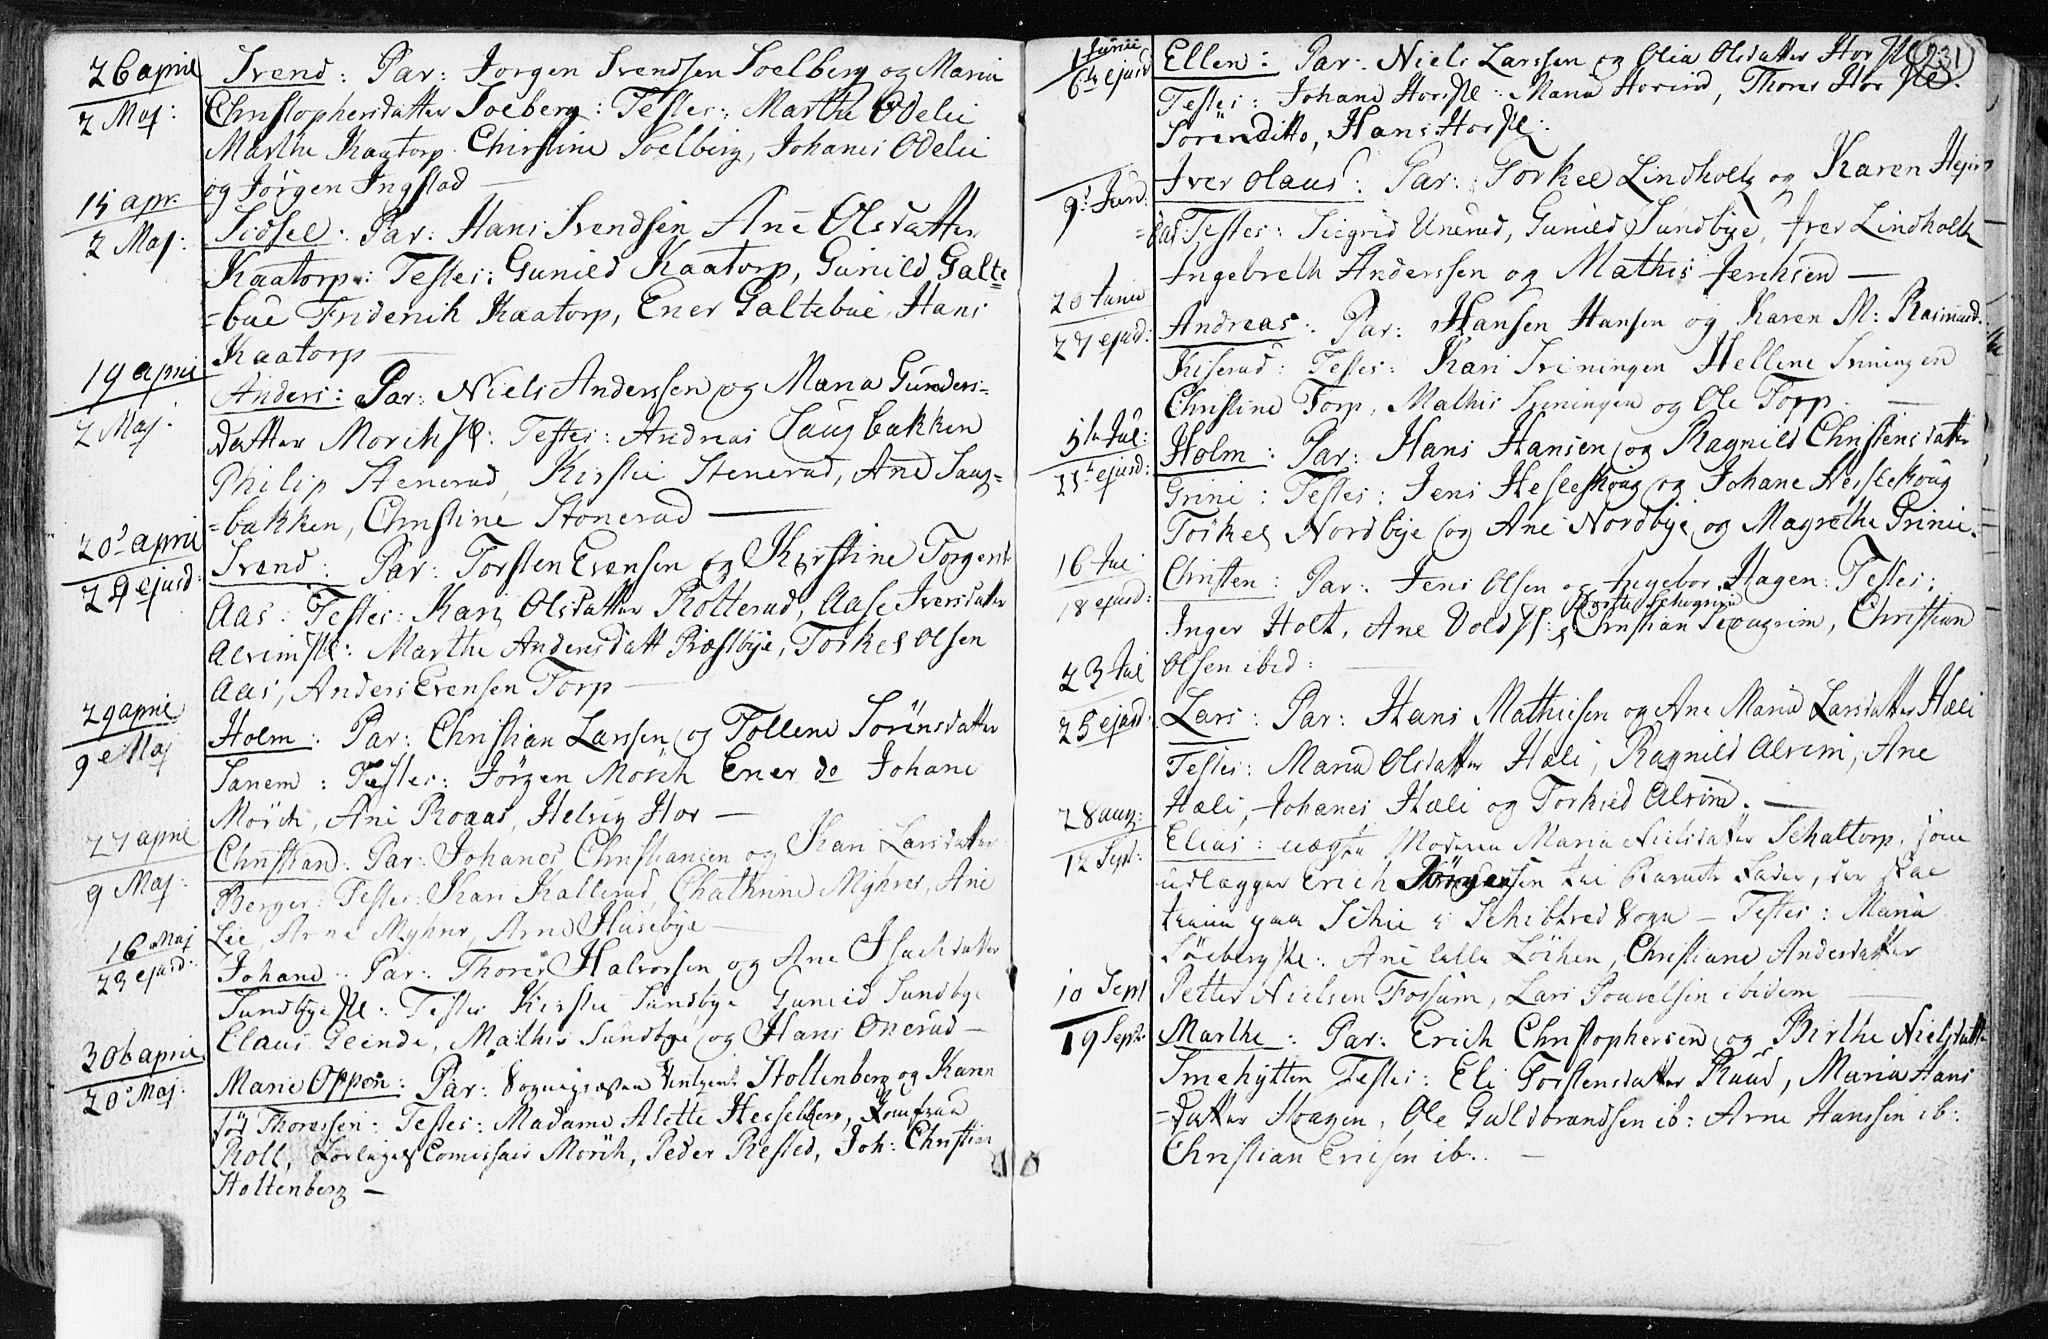 26 april
2 Maj:
Svend: Par: Jorgen Svendsen Soelberg og Maria
Christophersdatter Soeberg: Testes: Marthe Odelie
Marthe Kaatorp Christine Soelberg, Johanes Odelie
og Jørgen Ingstad —
15 apr.
2 Maj:
Sidsel: Par: Hans Svendsen Ane Olsdatter
Kaatorp: Testes: Gunild Kaatorp, Gunild Galte=
=bue Friderich Kaatorp, Ener Galtebue, Hans
Kaatorp —
19 april
2 Maj.
Anders: Par: Niels Anderssen og Maria Gunders=
datter Morch Pl: Testes: Andreas Saugbakken
Philip Stenerud, Kirstie Stenerud, Ane Saug=
=bakken, Christine Stonerud —
20 april
29 ejusd:
Svend: Par: Torsten Evensen og Kirstine Torgens
Aas: Testes: Kari Olsdatter Rotterud, Aase Iversdatter
Alvim Pl: Marthe Andersdatt Præstbye, Torkel Olsen
Aas, Anders Evensen Torp —
29 april
9 Maj
Holm: Par: Christian Larssen og Tollene Sørensdatter
Sanem: Testes: Jørgen Mørch Ener do Johane
Mørch, Ane Roaas, Helvig Hov —
27 april
9 Maj:
Christian: Par: Johanes Christiansen og Kari Larsdatter
Berger: Testes: Kari Kallerud, Chathrine Myhrer, Ane
Lie, Arne Myhrer, Arne Husebye —
16 Maj
23 ejusd:
Johane: Par: Thorer Halvorsen og Ane Isachdatter
Sundbye Pl: Testes Kirstie Sundbye Gunild Sundbye
Claus Geinde, Mathis Sundbye og Hans Onerud —
30 april
20 Maj:
Marie Oppen: Par: Sognepræsten Ventzent Holtenberg og Karen
fød Thoressen: Testes: Madame Alette Hesselberg, Jomfrue
Roll, Comissair Mørch, Peder Rested, Joh: Christian
Holtenberg —
231
1 Junii
6 ejusd
Ellen: Par: Niels Larssen og Olia Olsdatter Hor Pl
Testes: Johane Hor Pl: Maria Horind, Thorer Hor Pl.
Søren ditto, Hans Hor Pl:
9 Jun:
Iver Olaus: Par: Torkel Lindholt og Karen Hejer
Testes: Siegrid Unerud, Gunild Sundbye, Iver Lindholt
Ingebreth Anderssen og Mathis Jenhsen —
20 Junii
27 ejusd:
Andreas: Par: Hansen Hansen og Karen M: Rasmusd:
Kiserud: Testes: Kari Sveningen Hellene Sveningen
Christine Torp, Mathis Sveningen og Ole Torp. —
5 Jul:
25 ejusd:
Holm: Par: Hans Hansen og Ragnild Christensdatter
Grini: Testes: Jens Hesleskoug og Johane Hesleskoug
Torkel Nordbye og Ane Nordbye og Magrethe Grinie.
16 Jul
18 ejusd:
Christen: Par: Jens Olsen og Ingebor Hagen: Testes:
Inger Holt, Ane Vold Pl: Christian Skougrim, Christian
Olsen ibid: —
23 Jul
25 ejusd
Lars: Par: Hans Mathiesen og Ane Maria Larsdatter Hæli
Testes: Maria Olsdatter Hæli, Ragnild Alvim, Ane
Hæli, Johanes Hæli og Torkild Alvim. —
28 aug:
12 Sept:
Elias: uægte Moderen Maria Nielsdatter Schaltorp, som
udlægger Erich Jørgensen til Barnets Fader, der skal
tiene paa Schie i Schibtved Sogn — Testes: Maria
Søeberg Pl: Ane Lille Løchen, Christiane Andersdatter
Petter Nielsen Fossum, Lars Povelsen ibidem —
10 Sept
19 Sept:
Marthe: Par: Erich Christophersen og Birthe Nielsdatter
Smehytten Testes: Eli Torstensdatter Ruud, Maria Hans
=datter Haagen, Ole Guldbrandsen ib: Arne Hanssen ib:
Christian Ericsen ib: —